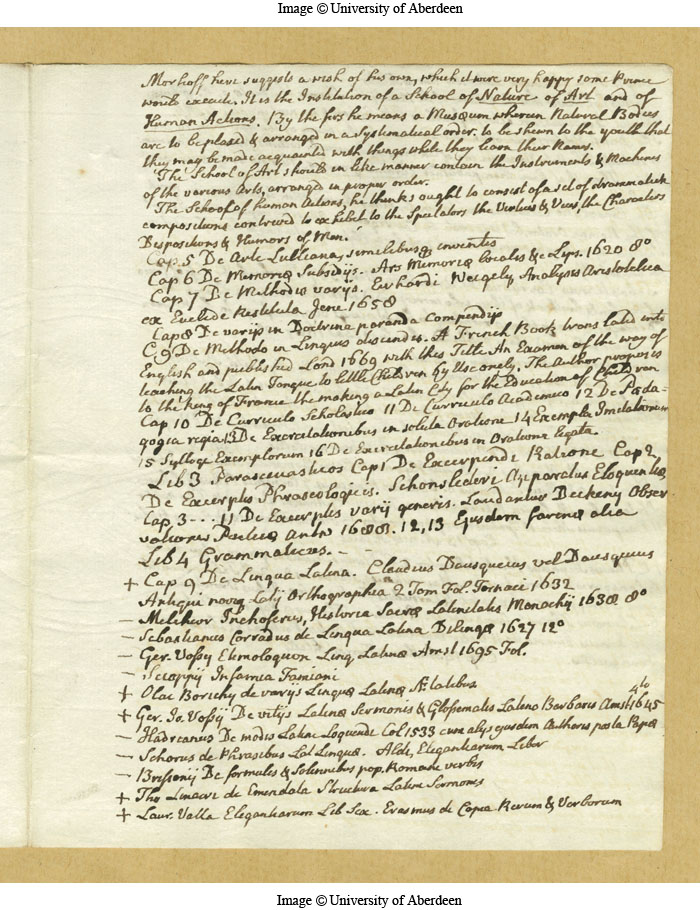 Image © University of Aberdeen
Morhoff here suggests a wish of his own, which it were very happy some Prince
would execute. It is the Institution of a School of Nature of Art and of
Human Actions. By the first he means a Museum wherein Natural Bodies
are to be placed & arranged in a Systematical order. to be shewn to the youth that
they may be made acquainted with things while they learn their Names.
The School of Art should in like manner contain the Instruments & Machines
of the various Arts, arranged in proper order.
The School of human Actions, he thinks ought to consist of a set of drammatick
compositions contrived to exhibit to the Spectators the Virtues & Vices, the Characters
Dispositions & Humors of Men.
Cap. 5 De Arte Lulliana, similibusq inventis
Cap 6 De Memoriæ Subsidijs. Ars Memoriæ localis &c Lips. 1620 8º
Cap 7 De Methodis varijs. Erhardi Weigely Analysis Aristotelica
ex Euclide Restituta Jene 1658
Cap 8 De varijs in Doctrina paranda compendijs
C. 9 De Methodo in Linguis discendis. A French Book translated into
English and published Lond 1669 with this Title An Examen of the way of
teaching the Latin Tongue to little Children by Use only. The Author proposes
to the King of France the making a Latin City for the Education of Children
Cap 10 De Curriculo Scholastico 11 De Curriculo Academico 12 De Pæda-
gogia regia 13 De Exercitationibus in soluta Oratione 14 Exempla Imitationum
15 Sylloge Exemplorum 16 De Exercitationibus in Oratione ligata
Lib 3 Parascevasticos Cap 1 De Excerpendi Ratione Cap 2
De Excerptis Phraseologicis. Schonslederi Apparatus Eloquentiæ
Cap. 3 - - - 11 De Excerptis varij generis. Laudantur Beckeny Obser
vationes Anth 1688. 12, 13 Ejusdem farinæ alia
Lib 4 Grammaticus. -
+ Cap 9 De Lingua Latina. Claudius Dausqueius vel Dausquius
Antiqui noviq Latij Orthographia 2 Tom Fol. Tornaci 1632
— Melchior Inchoferus, Historia Sacræ Latinitatis Monachij 1638 8º
— Sebastianus Corradus de Lingua Latina Dilingæ 1627 12º
— Ger. Vossij Etimologicon Ling Latinæ Amst 1695 Fol.
— Scioppij Infamia Famiani
+ Olai Borichij de varijs Linguæ Latinæ Ætatibus
+ Ger. Jo. Vossij De vitijs Latinæ Sermonis & Glossematis Latino Barbaris Amst 4to 1645
— Hadreanus De modis Latine Loquendi Col 1533 cum alijs ejusdem Authoris postea Papæ
— Schorus de Phrasibus Lat Linguæ. Aldi, Elegantiarum Liber
— Brissonij De formulis & Solennibus pop. Romani verbis
+ Tho Linacri de Emendata Structura Latini Sermonis
+ Laur. Valla Elegantiarum Lib Sex. Erasmus de Copia Rerum & Verborum
Image © University of Aberdeen